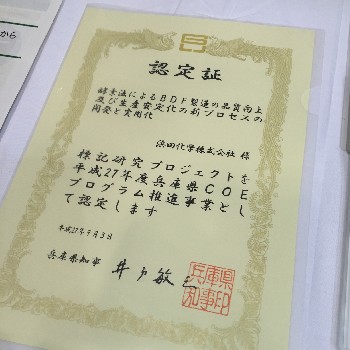 から
認定証
酵素法によるBDF製造の品質向上
及び生産安定化の新プロセスの
開発と実用化
浜田化学株式会社 様
標記研究プロジェクトを
平成27年度兵庫県COE
プログラム推進事業とし
て認定します
平成27年9月3日
兵庫県知事 井戸敏三
兵庫県
知事印